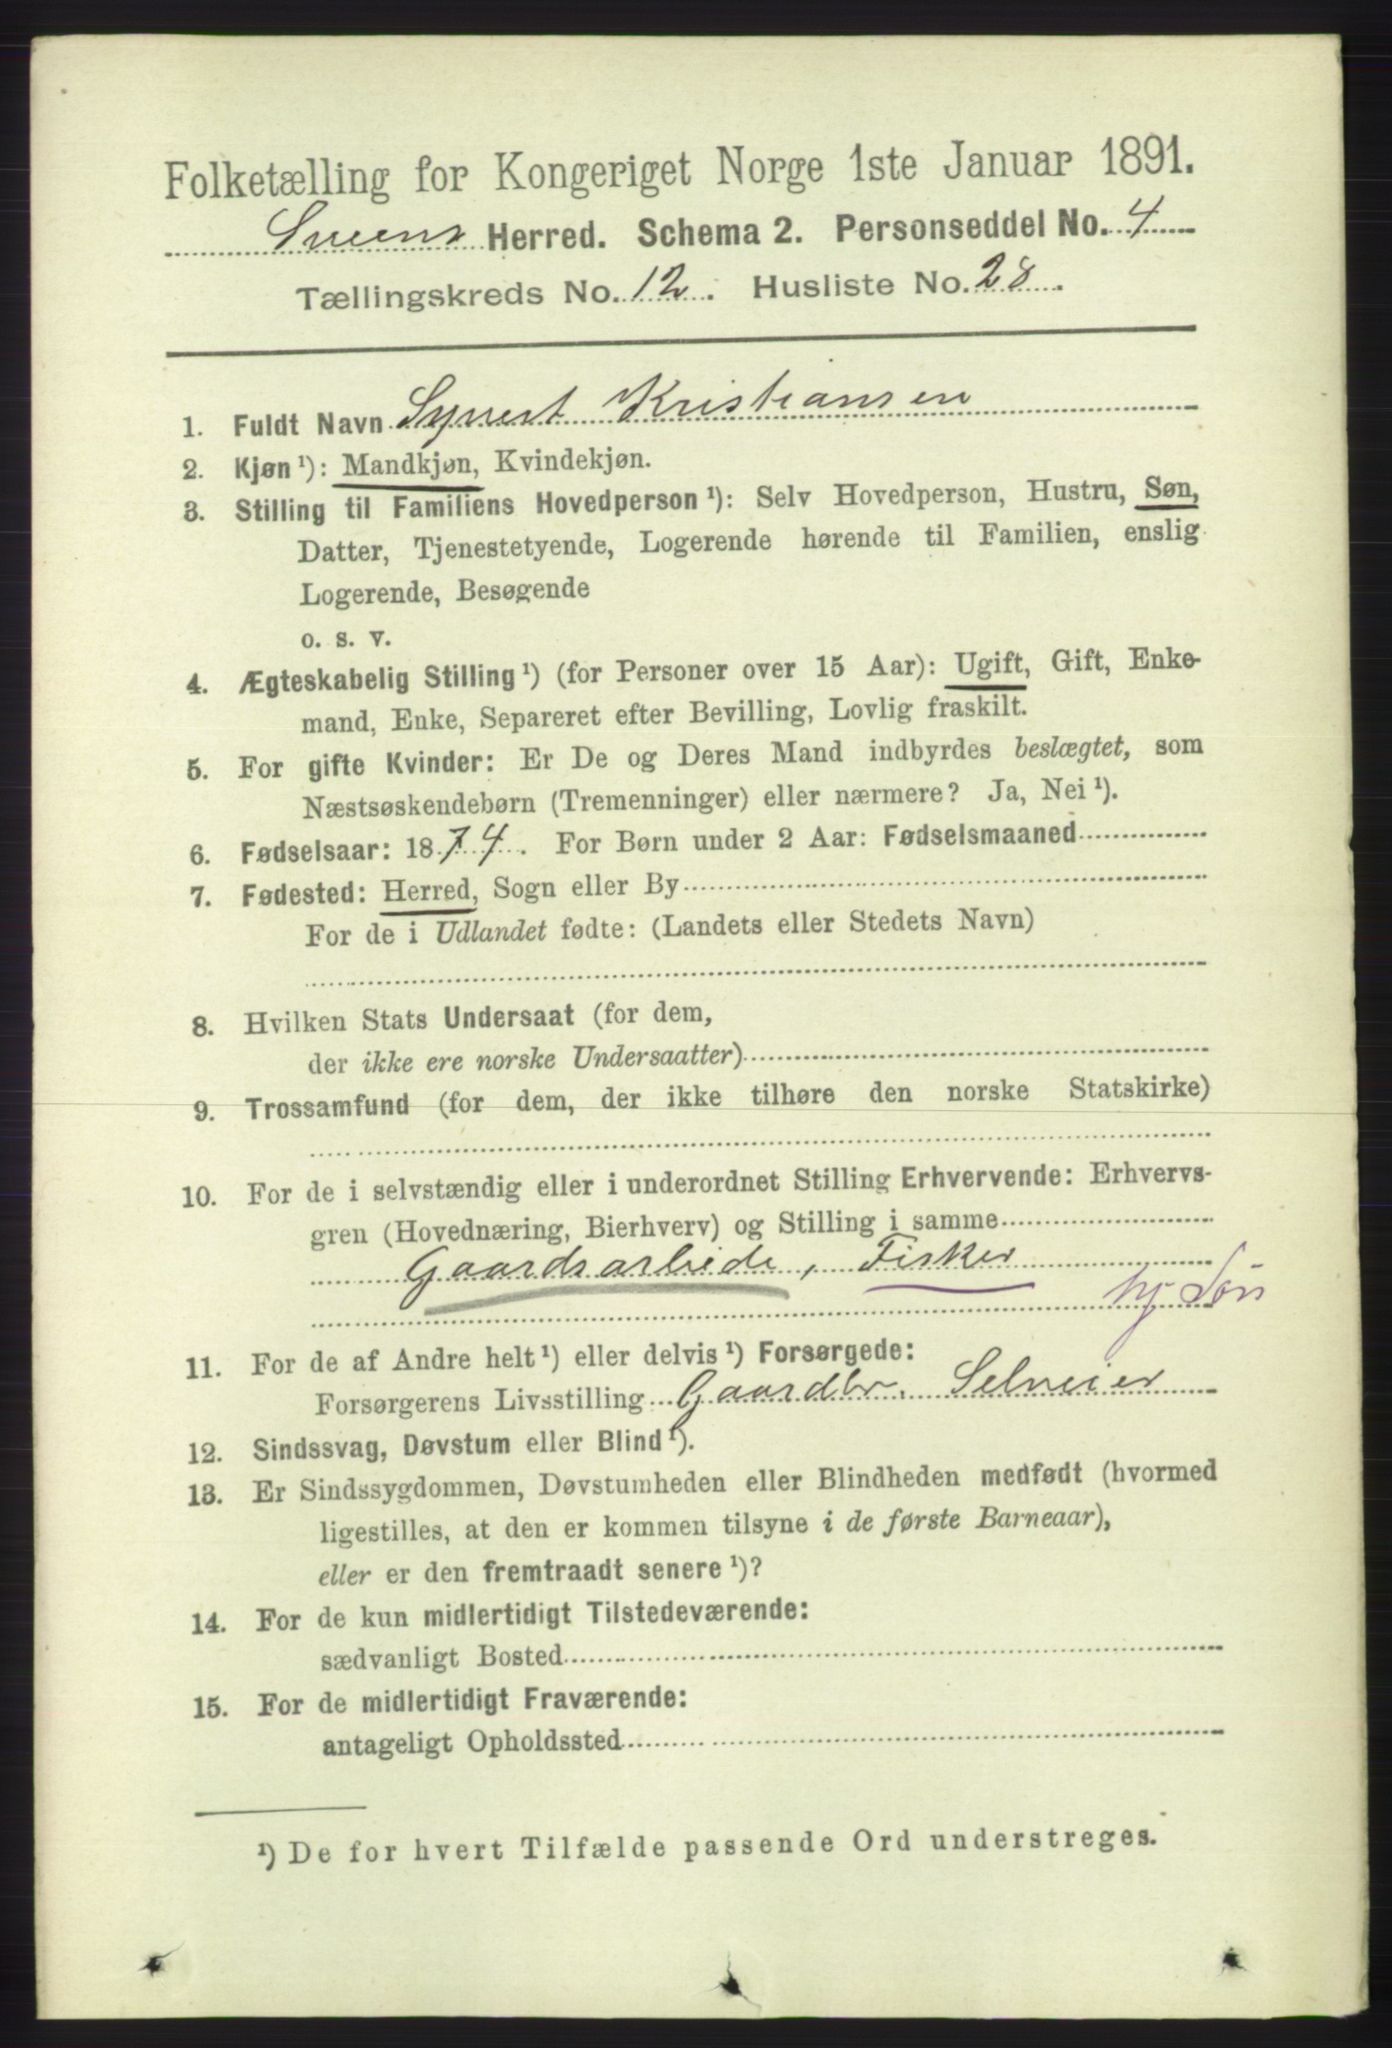 Folketælling for Kongeriget Norge 1ste Januar 1891.
Sveens Herred. Schema 2. Personseddel No. 4
Tællingskreds No. 12. Husliste No. 28.
1. Fuldt Navn Synest Kristiansen
2. Kjøn¹): Mandkjøn, Kvindekjøn.
3. Stilling til Familiens Hovedperson¹): Selv Hovedperson, Hustru, Søn,
Datter, Tjenestetyende, Logerende hørende til Familien, enslig
Logerende, Besøgende
o. s. v.
4. Ægteskabelig Stilling¹) (for Personer over 15 Aar): Ugift, Gift, Enke-
mand, Enke, Separeret efter Bevilling, Lovlig fraskilt.
5. For gifte Kvinder: Er De og Deres Mand indbyrdes beslægtet, som
Næstsøskendebørn (Tremenninger) eller nærmere? Ja, Nei¹).
6. Fødselsaar: 1874. For Børn under 2 Aar: Fødselsmaaned
7. Fødested: Herred, Sogn eller By
For de i Udlandet fødte: (Landets eller Stedets Navn)
8. Hvilken Stats Undersaat (for dem,
der ikke ere norske Undersaatter)
9. Trossamfund (for dem, der ikke tilhøre den norske Statskirke)
10. For de i selvstændig eller i underordnet Stilling Erhvervende: Erhvervs-
gren (Hovednæring, Bierhverv) og Stilling i samme
Gaardsarbeide, Fisker
hj Søn
11. For de af Andre helt¹) eller delvis¹) Forsørgede:
Forsørgerens Livsstilling Gaardbr. Selveier
12. Sindssvag, Døvstum eller Blind¹).
13. Er Sindssygdommen, Døvstumheden eller Blindheden medfødt (hvormed
ligestilles, at den er kommen tilsyne i de første Barneaar),
eller er den fremtraadt senere¹)?
14. For de kun midlertidigt Tilstedeværende:
sædvanligt Bosted
15. For de midlertidigt Fraværende:
antageligt Opholdssted
¹) De for hvert Tilfælde passende Ord understreges.